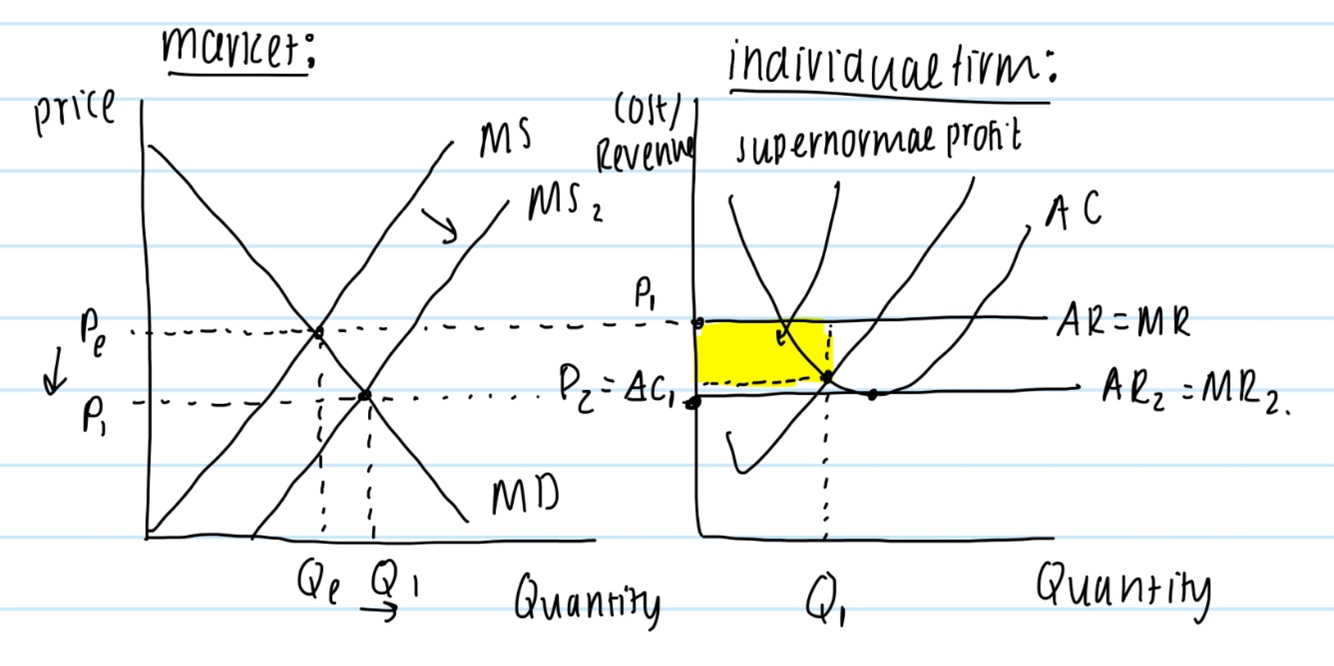 market:
price
MS
MS₂
Pe
P₁
MD
Qe Q₁
Quantity
individual firm:
Cost/
Revenue
supernormal profit
AC
P₁
AR=MR
P₂=AC₁
AR₂=MR₂.
Q₁
Quantity